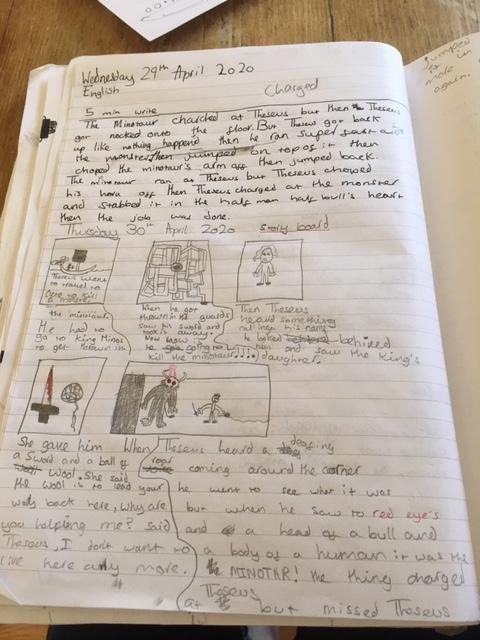 Wednesday 29th April 2020
English
Charged
5 min write
The Minotaur charched at Theseus but then the Theseus
got nocked onto the floor. But Theseus got back
up like nothing happend then he ran super fast
the monster then jumped on top of it then
choped the minotaur's arm off then jumped back.
The minotaur ran at Theseus but Theseus chowed
his horn off then Theseus charged at the monster
and stabbed it in the half man half bull's heart
then the job was done.
Thursday 30th April 2020 story board
Theseus went
to travel to
to kill
the minotaur.
He had to
go to King Minos
to get thrown in
When he got
thrown in the guards
saw his sword and
took it away.
Now how is
he going to
kill the minotaur!!!!
Then Theseus
heard something
call his name
he looked behined
him and saw the King's
daughter.
She gave him
a sword and a ball of
wool. She said
the wool is to lead your
way back here, Why are
you helping me? said
Theseus, I don't want to
live here any more.
When Theseus heard a deafing
roar coming around the corner
he went to see what it was
but when he saw to red eye's
and a head of a bull and
a body of a human it was the
MINOTAR! the thing charged
at Theseus but missed Theseus
jumped
it
more in
again.